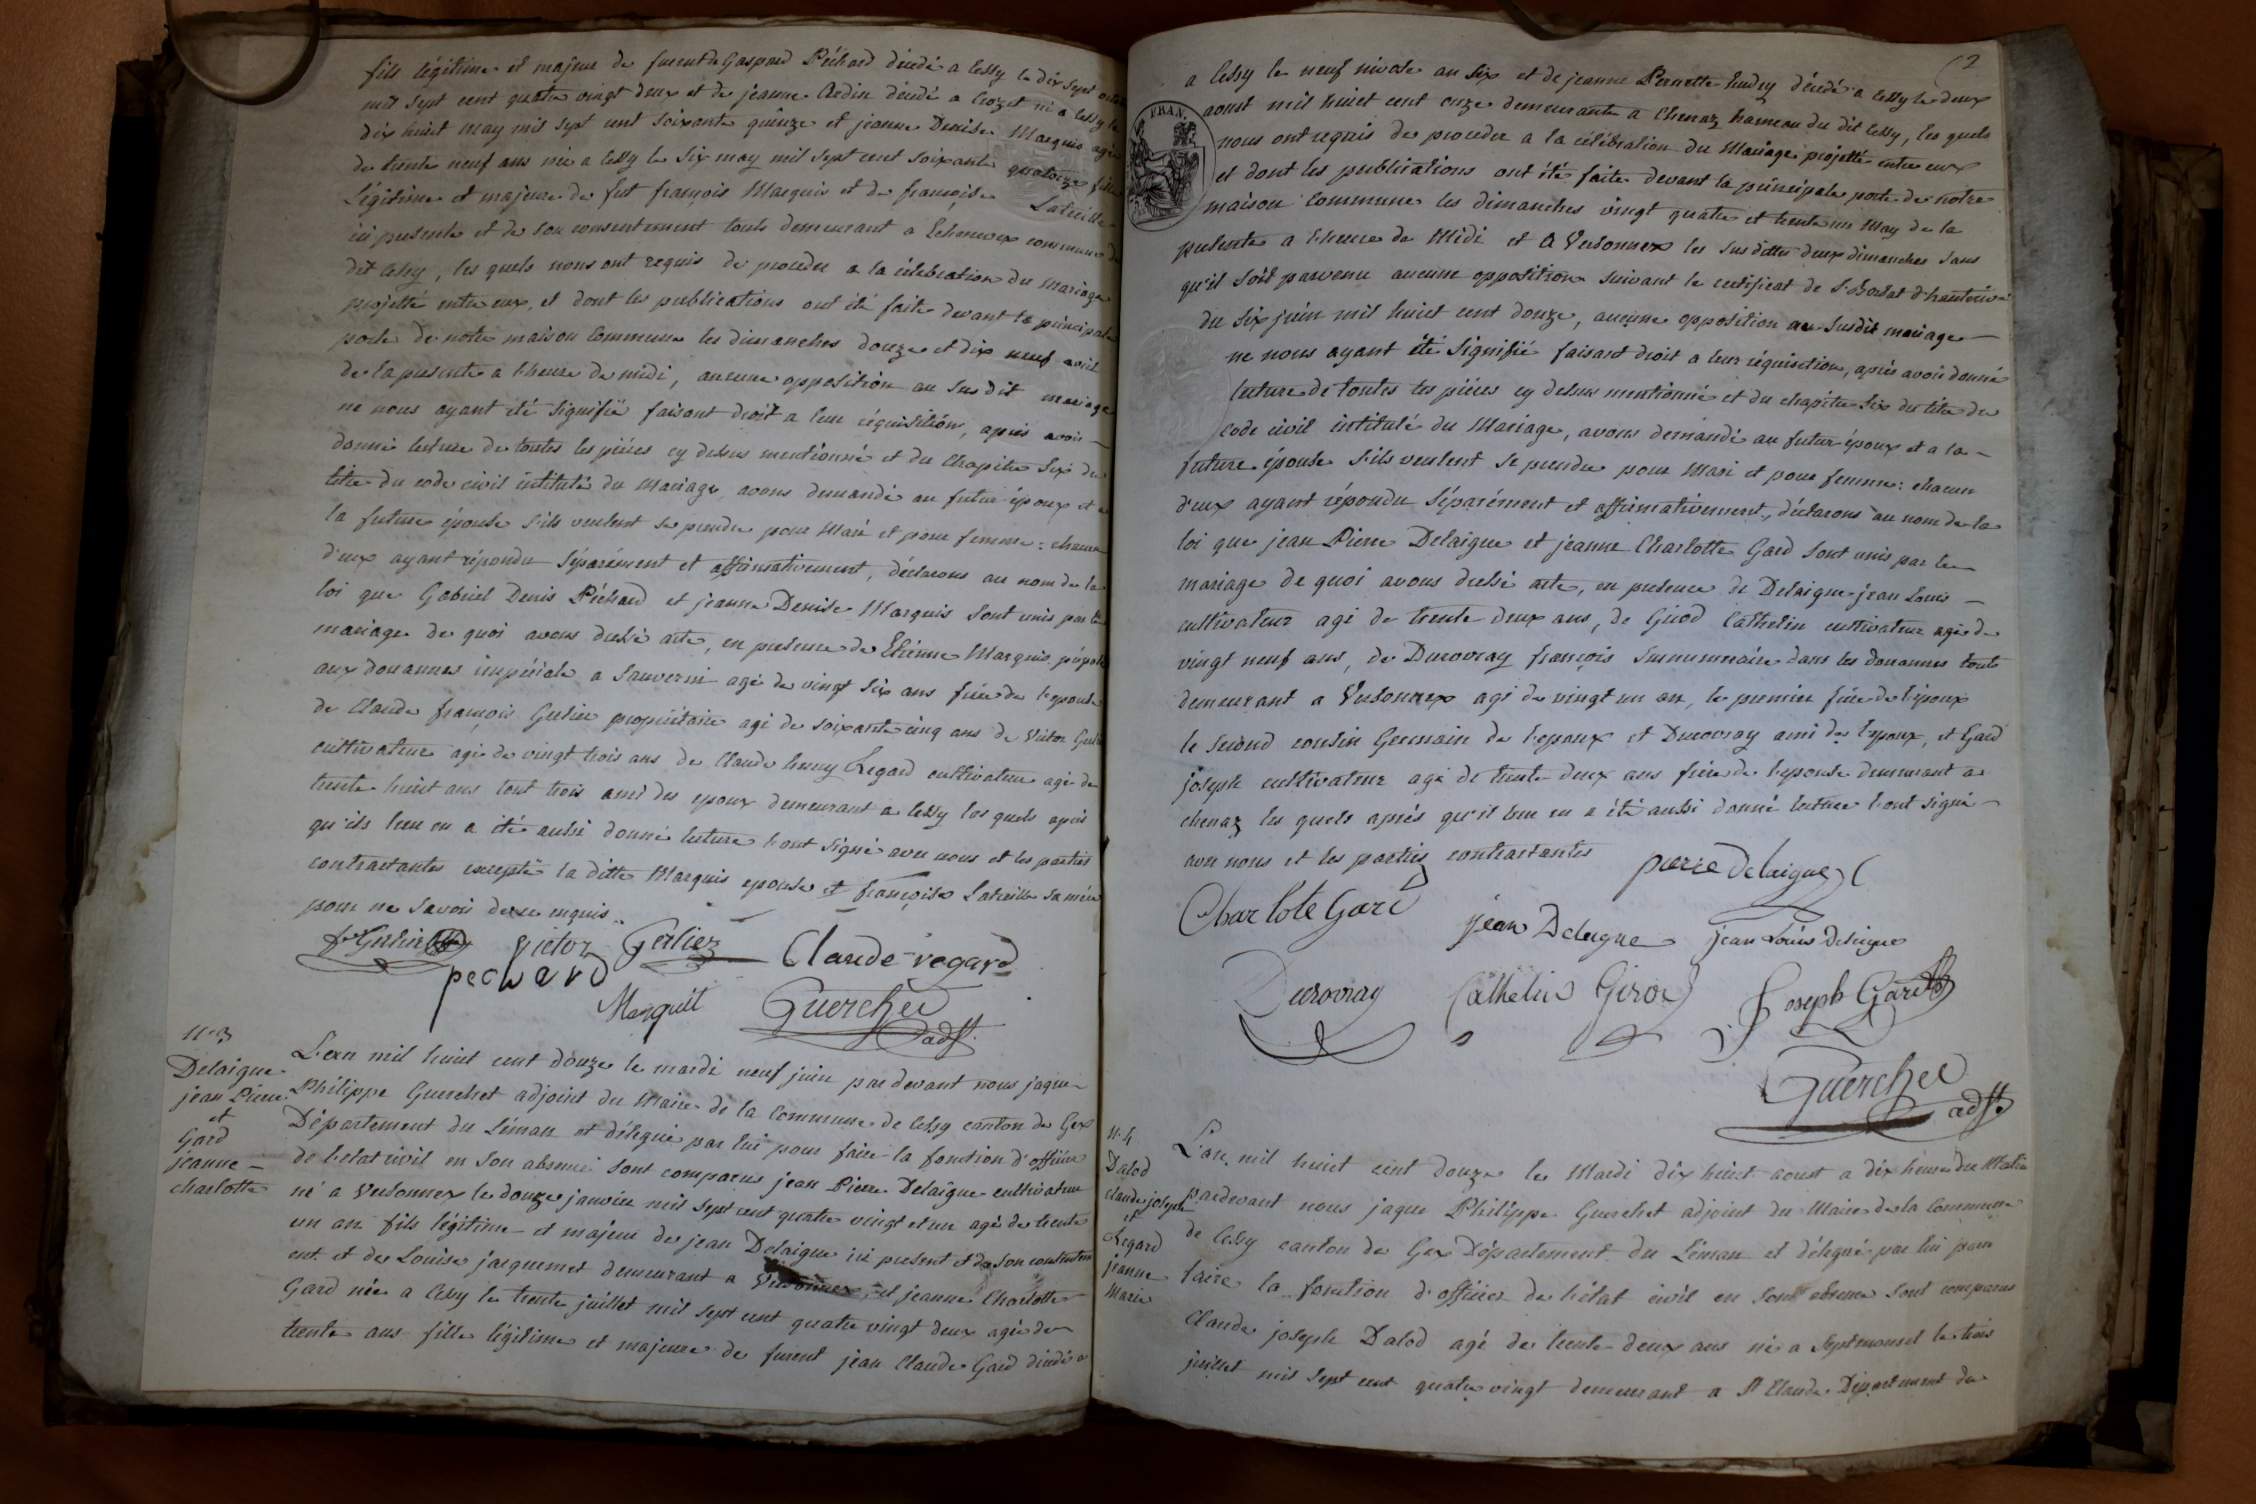 fils légitime et majeur de furent Gaspard Péchard décédé a Cessy le dix sept
mil sept cent quatre vingt deux et de jeanne Ardin décédé a Crozet né a Cessy le
dix huit may mil sept cent soixante quinze et jeanne Denise Marquis agée
de trente neuf ans née a Cessy le six may mil sept cent soixante quatorze fille
Légitime et majeure de fut françois Marquis et de françoise Latreille
ici presente et de son consentement touts demeurant a Echenevex commune du
dit Cessy, les quels nous ont requis de proceder a la célébration du Mariage
projetté entre eux, et dont les publications ont été faite devant la principale
porte de notre maison Commune les dimanches douze et dix neuf avril
de la presente a l'heure de midi, aucune opposition au Sus dit mariage
ne nous ayant été signifié faisant droit a leur réquisition, après avoir
donné lecture de toutes les pièces cy dessus mentionné et du Chapitre Six du
titre du code civil intitulé du Mariage, avons demandé au futur époux et a
la future épouse s'ils veulent se prendre pour Mari et pour femme : chacun
d'eux ayant répondu séparément et affirmativement, déclarons au nom de la
loi que Gabriel Denis Péchard et jeanne Denise Marquis sont unis par le
mariage de quoi avons dressé acte, en presence de Etienne Marquis préposé
aux douannes impériale a Sauverni agé de vingt six ans frère de l'epouse
de Claude françois Gerlier propriétaire agé de soixante cinq ans de Victor Gerlier
cultivateur agé de vingt trois ans de Claude henry Regard cultivateur agé de
trente huit ans tout trois ami des epoux demeurant a Cessy les quels après
qu'ils leur en a été aussi donné lecture l'ont signé avec nous et les parties
contractantes excepté la ditte Marquis epouse et françoise Latreille sa mère
pour ne savoir de ce enquis..
fs Gerlier victor Gerlier Claude regard
pechard Marquit Guerchet adjt.
N.o 3
Delaigue
jean Pierre
et
Gard
jeanne
charlotte
L'an mil huit cent douze le mardi neuf juin par devant nous jaque
Philippe Guerchet adjoint du Maire de la Commune de Cessy canton de Gex
Département du Léman et délegué par lui pour faire la fonction d'officier
de l'etat civil en son absence sont comparus jean Pierre Delaigue cultivateur
né a Versonnex le douze janvier mil sept cent quatre vingt et un agé de trente
un an fils légitime et majeur de jean Delaigue ici present et de son consentem
ent et de Louise jacquemet demeurant a Versonnex, et jeanne Charlotte
Gard née a Cessy le trente juillet mil sept cent quatre vingt deux agée de
trente ans fille légitime et majeure de furent jean Claude Gard décédé
2
a Cessy le neuf nivose an Six et de jeanne Pernette décédé a Cessy le deux
aoust mil huit cent onze demeurante a Chenaz hameau du dit Cessy, les quels
FRAN.
nous ont requis de proceder a la célébration du Mariage projetté entre eux
et dont les publications ont été faite devant la principale porte de notre
maison Commune les dimanches vingt quatre et trente un May de la
presente a l'heure de Midi et a Versonnex les susdittes deux dimanches sans
qu'il soit parvenu aucune opposition suivant le certificat de
du six juin mil huit cent douze, aucune opposition au susdit mariage
ne nous ayant été Signifié faisant droit a leur réquisition, après avoir donné
lecture de toutes les pièces cy dessus mentionné et du chapitre Six du titre du
code civil intitulé du Mariage, avons demandé au futur époux et a la
future épouse s'ils veulent se prendre pour Mari et pour femme : chacun
d'eux ayant répondu séparément et affirmativement, déclarons au nom de la
loi que jean Pierre Delaigue et jeanne Charlotte Gard sont unis par le
mariage de quoi avons dressé acte, en presence de Delaigue jean Louis
cultivateur agé de trente deux ans, de Girod Cathelin cultivateur agé de
vingt neuf ans, de Durovray françois surnumeraire dans les douannes touts
demeurant a Versonnex agé de vingt un an, le premier frère de l'époux
le second cousin Germain de l'epoux et Durovray ami de l'epoux, et Gard
joseph cultivateur agé de trente deux ans frère de l'epouse demeurant a
chenaz les quels après qu'il leur en a été aussi donné lecture l'ont signé
avec nous et les parties contractantes pierre Delaigue
Charlote Gard jean Delaigue jean Louis Delaigue
Durovray Cathelin Girod joseph Gard
Guerchet adjt.
N.o 4
Dalod
claude joseph
et
Regard
jeanne
Marie
L'an mil huit cent douze le Mardi dix huit aoust a dix heures du Matin
pardevant nous jaque Philippe Guerchet adjoint du Maire de la Commune
de Cessy canton de Gex Département du Léman et délegué par lui pour
faire la fonction d'officier de l'état civil en son absence sont comparus
Claude joseph Dalod agé de trente deux ans né a Septmoncel le trois
juillet mil sept cent quatre vingt demeurant a St Claude Département du